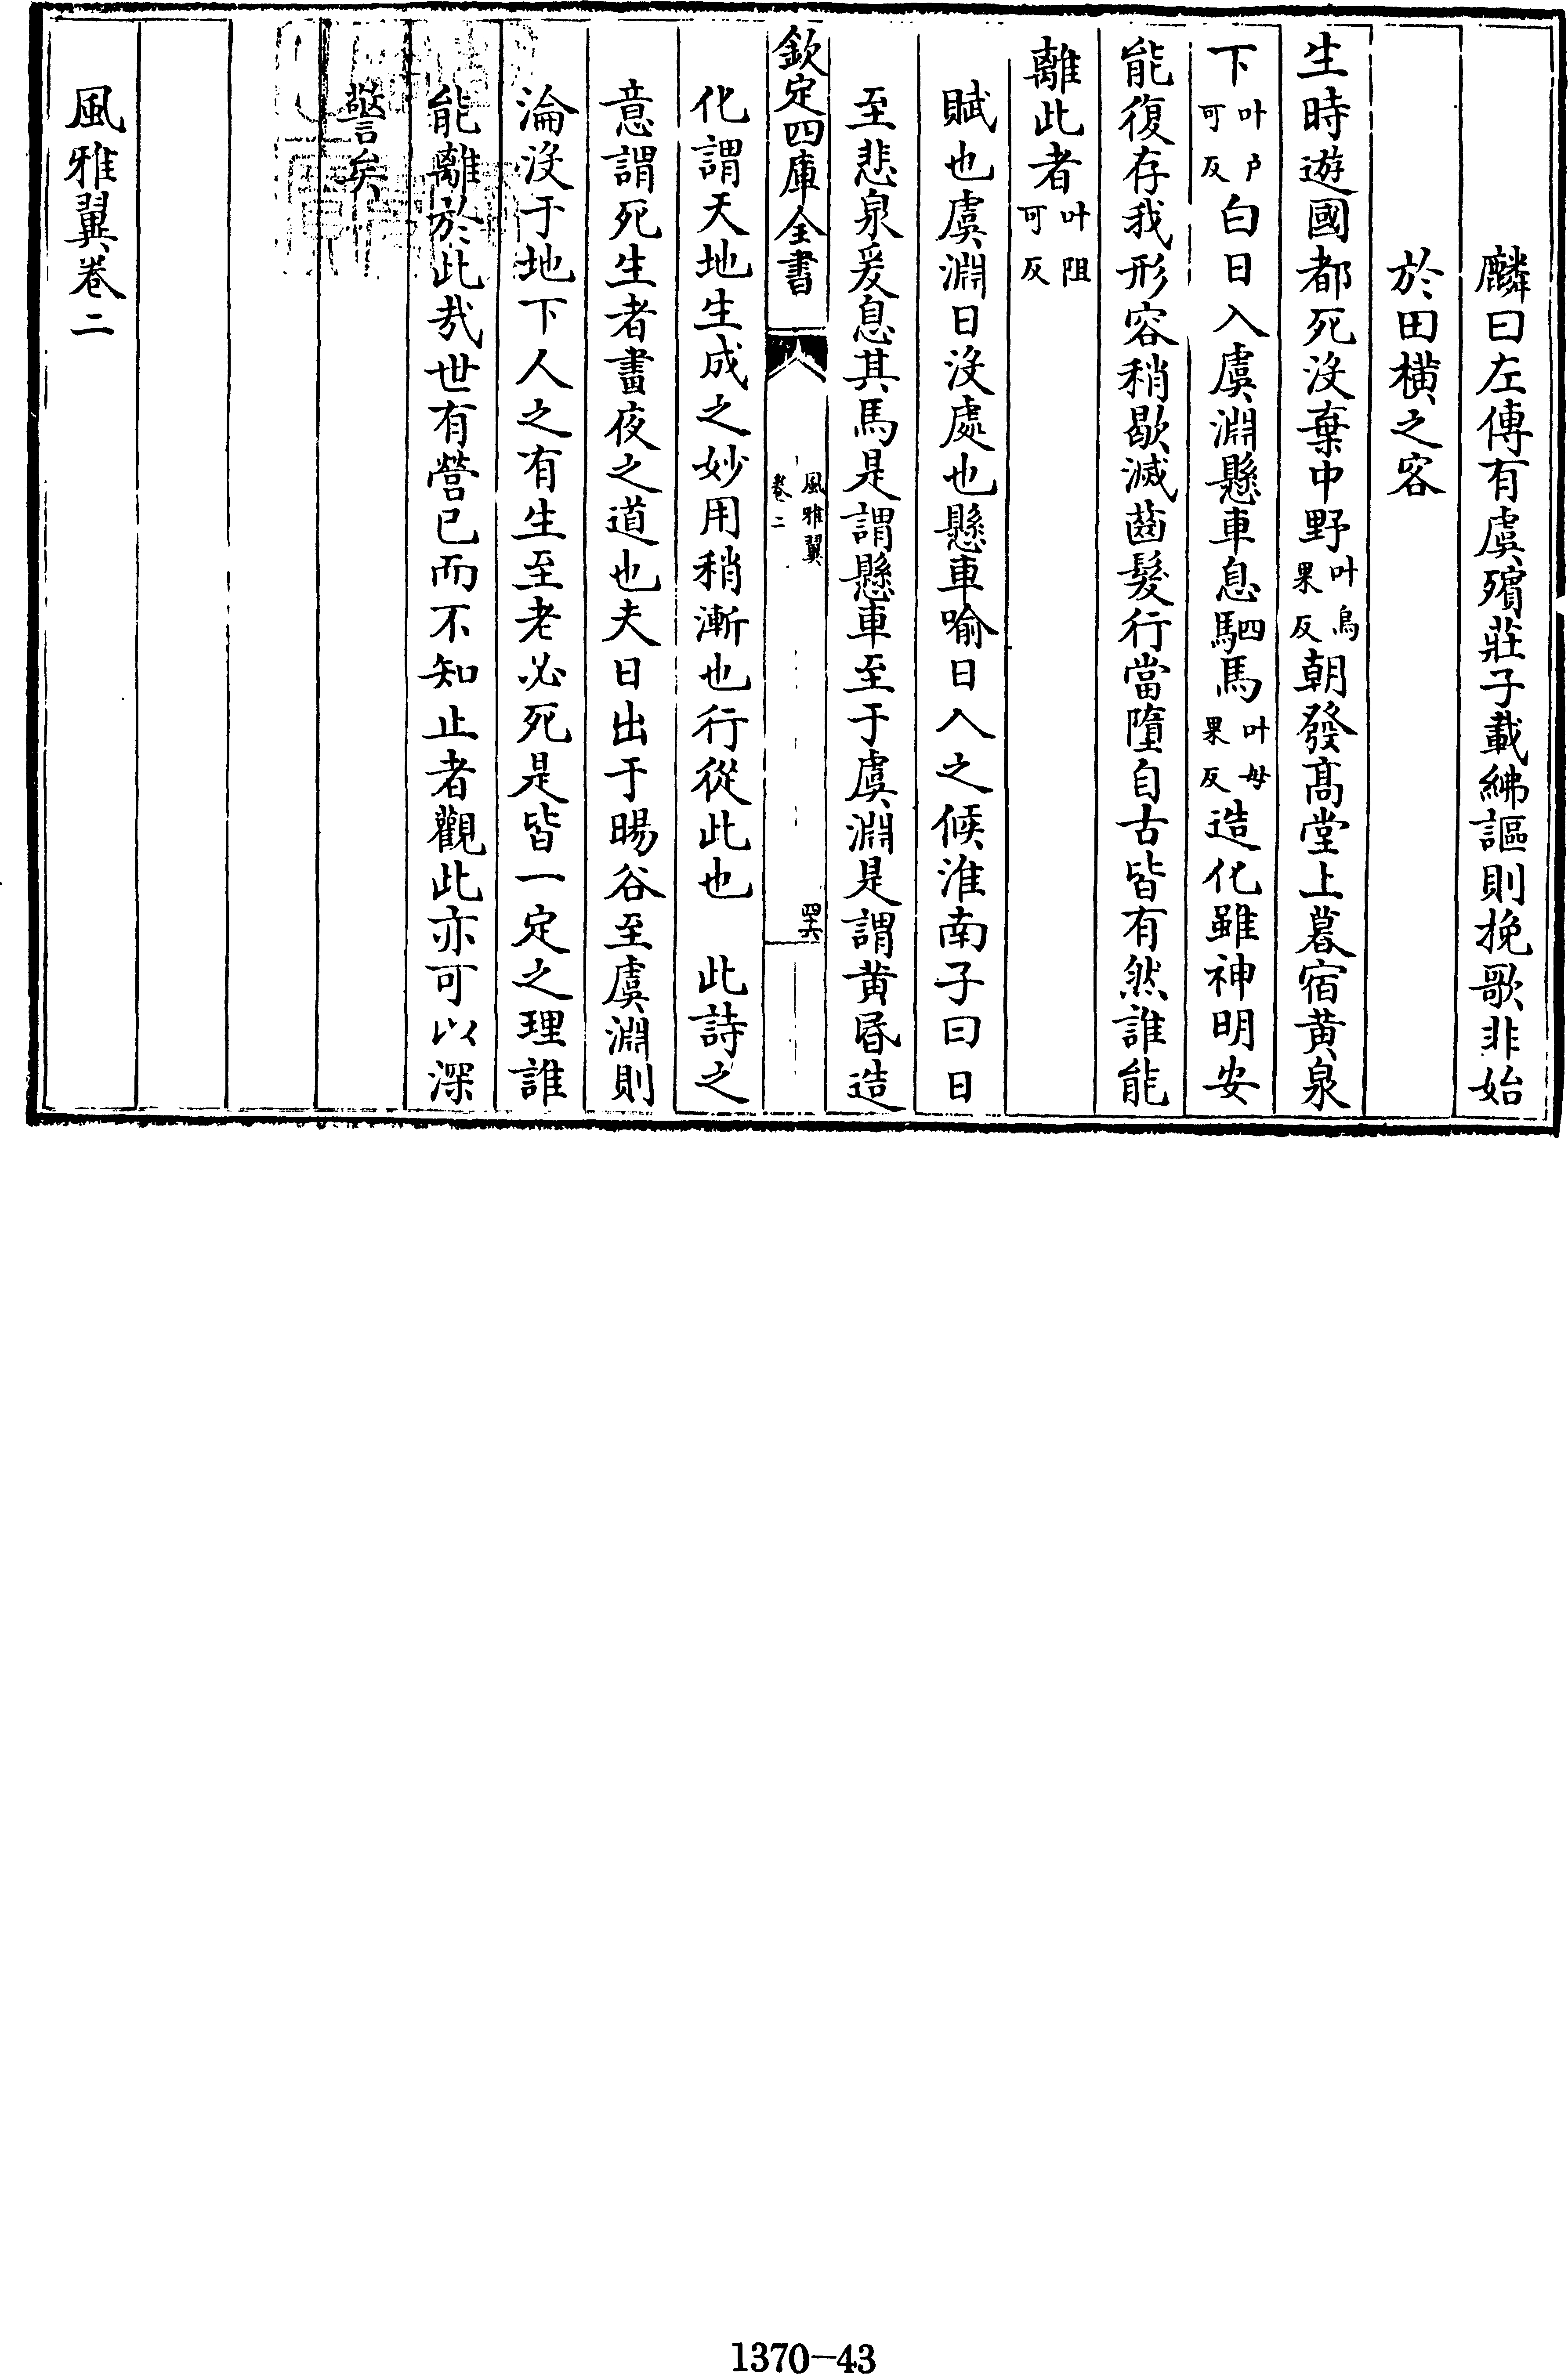 麟曰左傳有虞殯莊子載紼謳則挽歌非始
於田橫之客
生時遊國都死沒棄中野叶烏果反朝發髙堂上暮宿黄泉
下叶户可反白日入虞淵懸車息駟馬叶母果反造化雖神明安
能復存我形容稍歇滅齒髮行當墮自古皆有然誰能
離此者叶阻可反
賦也虞淵日沒處也懸車喻日入之候淮南子曰日
至悲泉爰息其馬是謂懸車至于虞淵是謂黄昬造
欽定四庫全書
風雅翼
卷二
四六
化謂天地生成之妙用稍漸也行從此也　此詩之
意謂死生者晝夜之道也夫日出于暘谷至虞淵則
淪沒于地下人之有生至老必死是皆一定之理誰
能離於此哉世有營已而不知止者觀此亦可以深
警矣
風雅翼卷二
1370-43